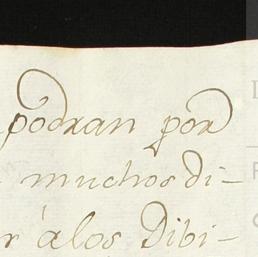 podran por
muchos di-
r á los Dibi-